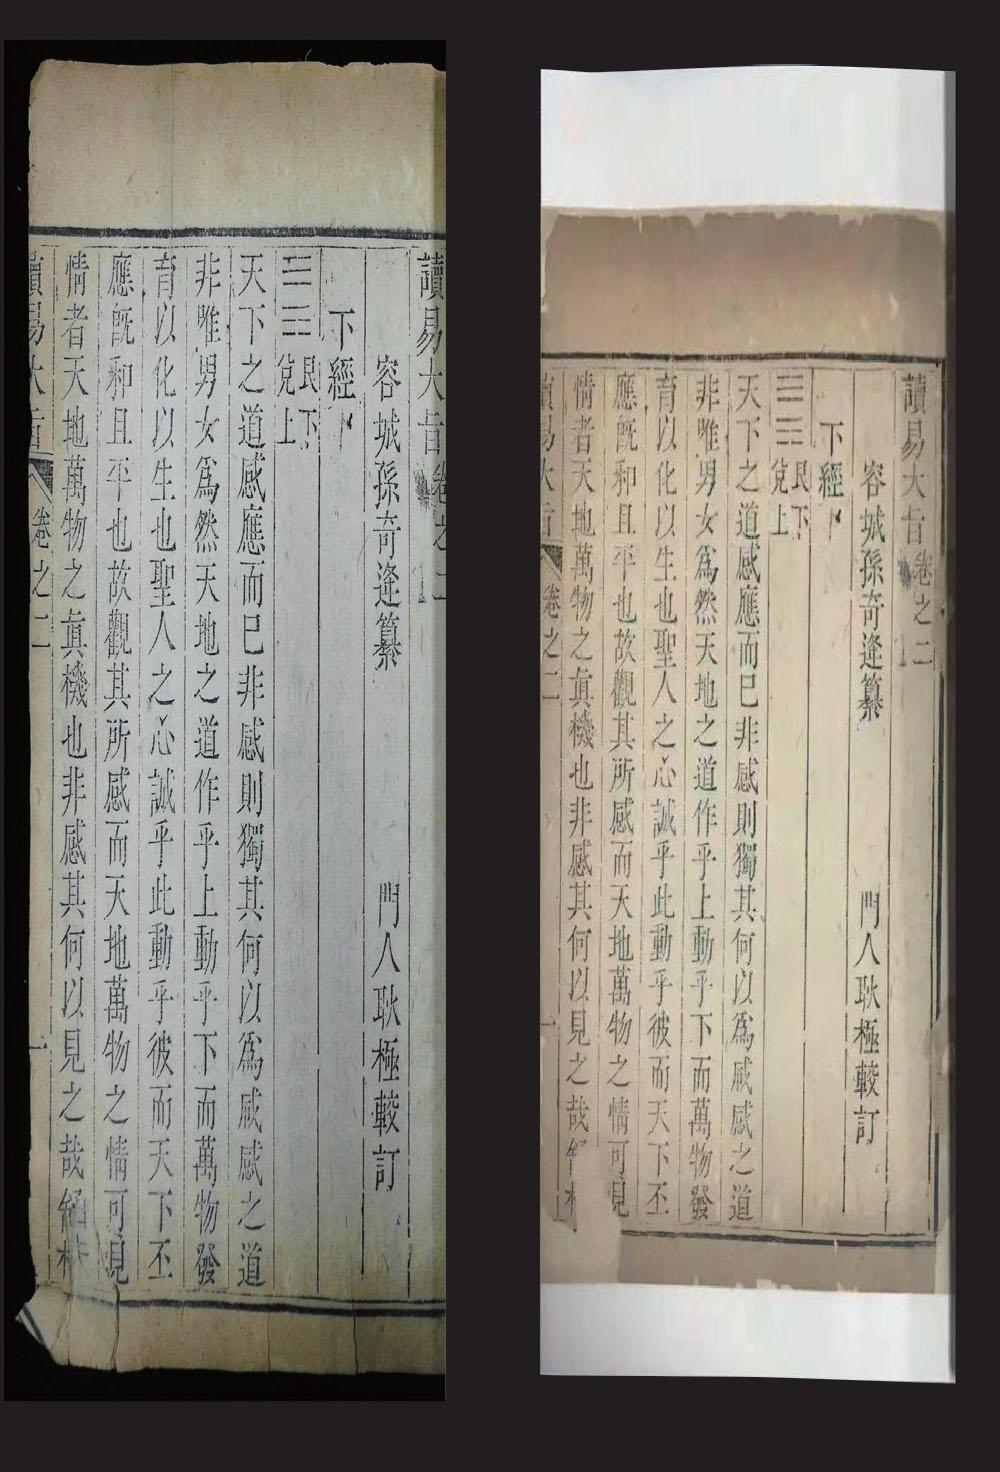 讀易大旨卷之二
容城孫奇逢纂 門人耿極較訂
下經
艮下
兌上
天下之道感應而已非感則獨其何以爲咸感之道
非唯男女爲然天地之道作乎上動乎下而萬物發
育以化以生也聖人之心誠乎此動乎彼而天下丕
應旣和且平也故觀其所感而天地萬物之情可見
情者天地萬物之眞機也非感其何以見之哉
讀易大旨 卷之二 一
讀易大旨卷之二
容城孫奇逢纂 門人耿極較訂
下經
艮下
兌上
天下之道感應而已非感則獨其何以爲咸感之道
非唯男女爲然天地之道作乎上動乎下而萬物發
育以化以生也聖人之心誠乎此動乎彼而天下丕
應旣和且平也故觀其所感而天地萬物之情可見
情者天地萬物之眞機也非感其何以見之哉
讀易大旨 卷之二 一